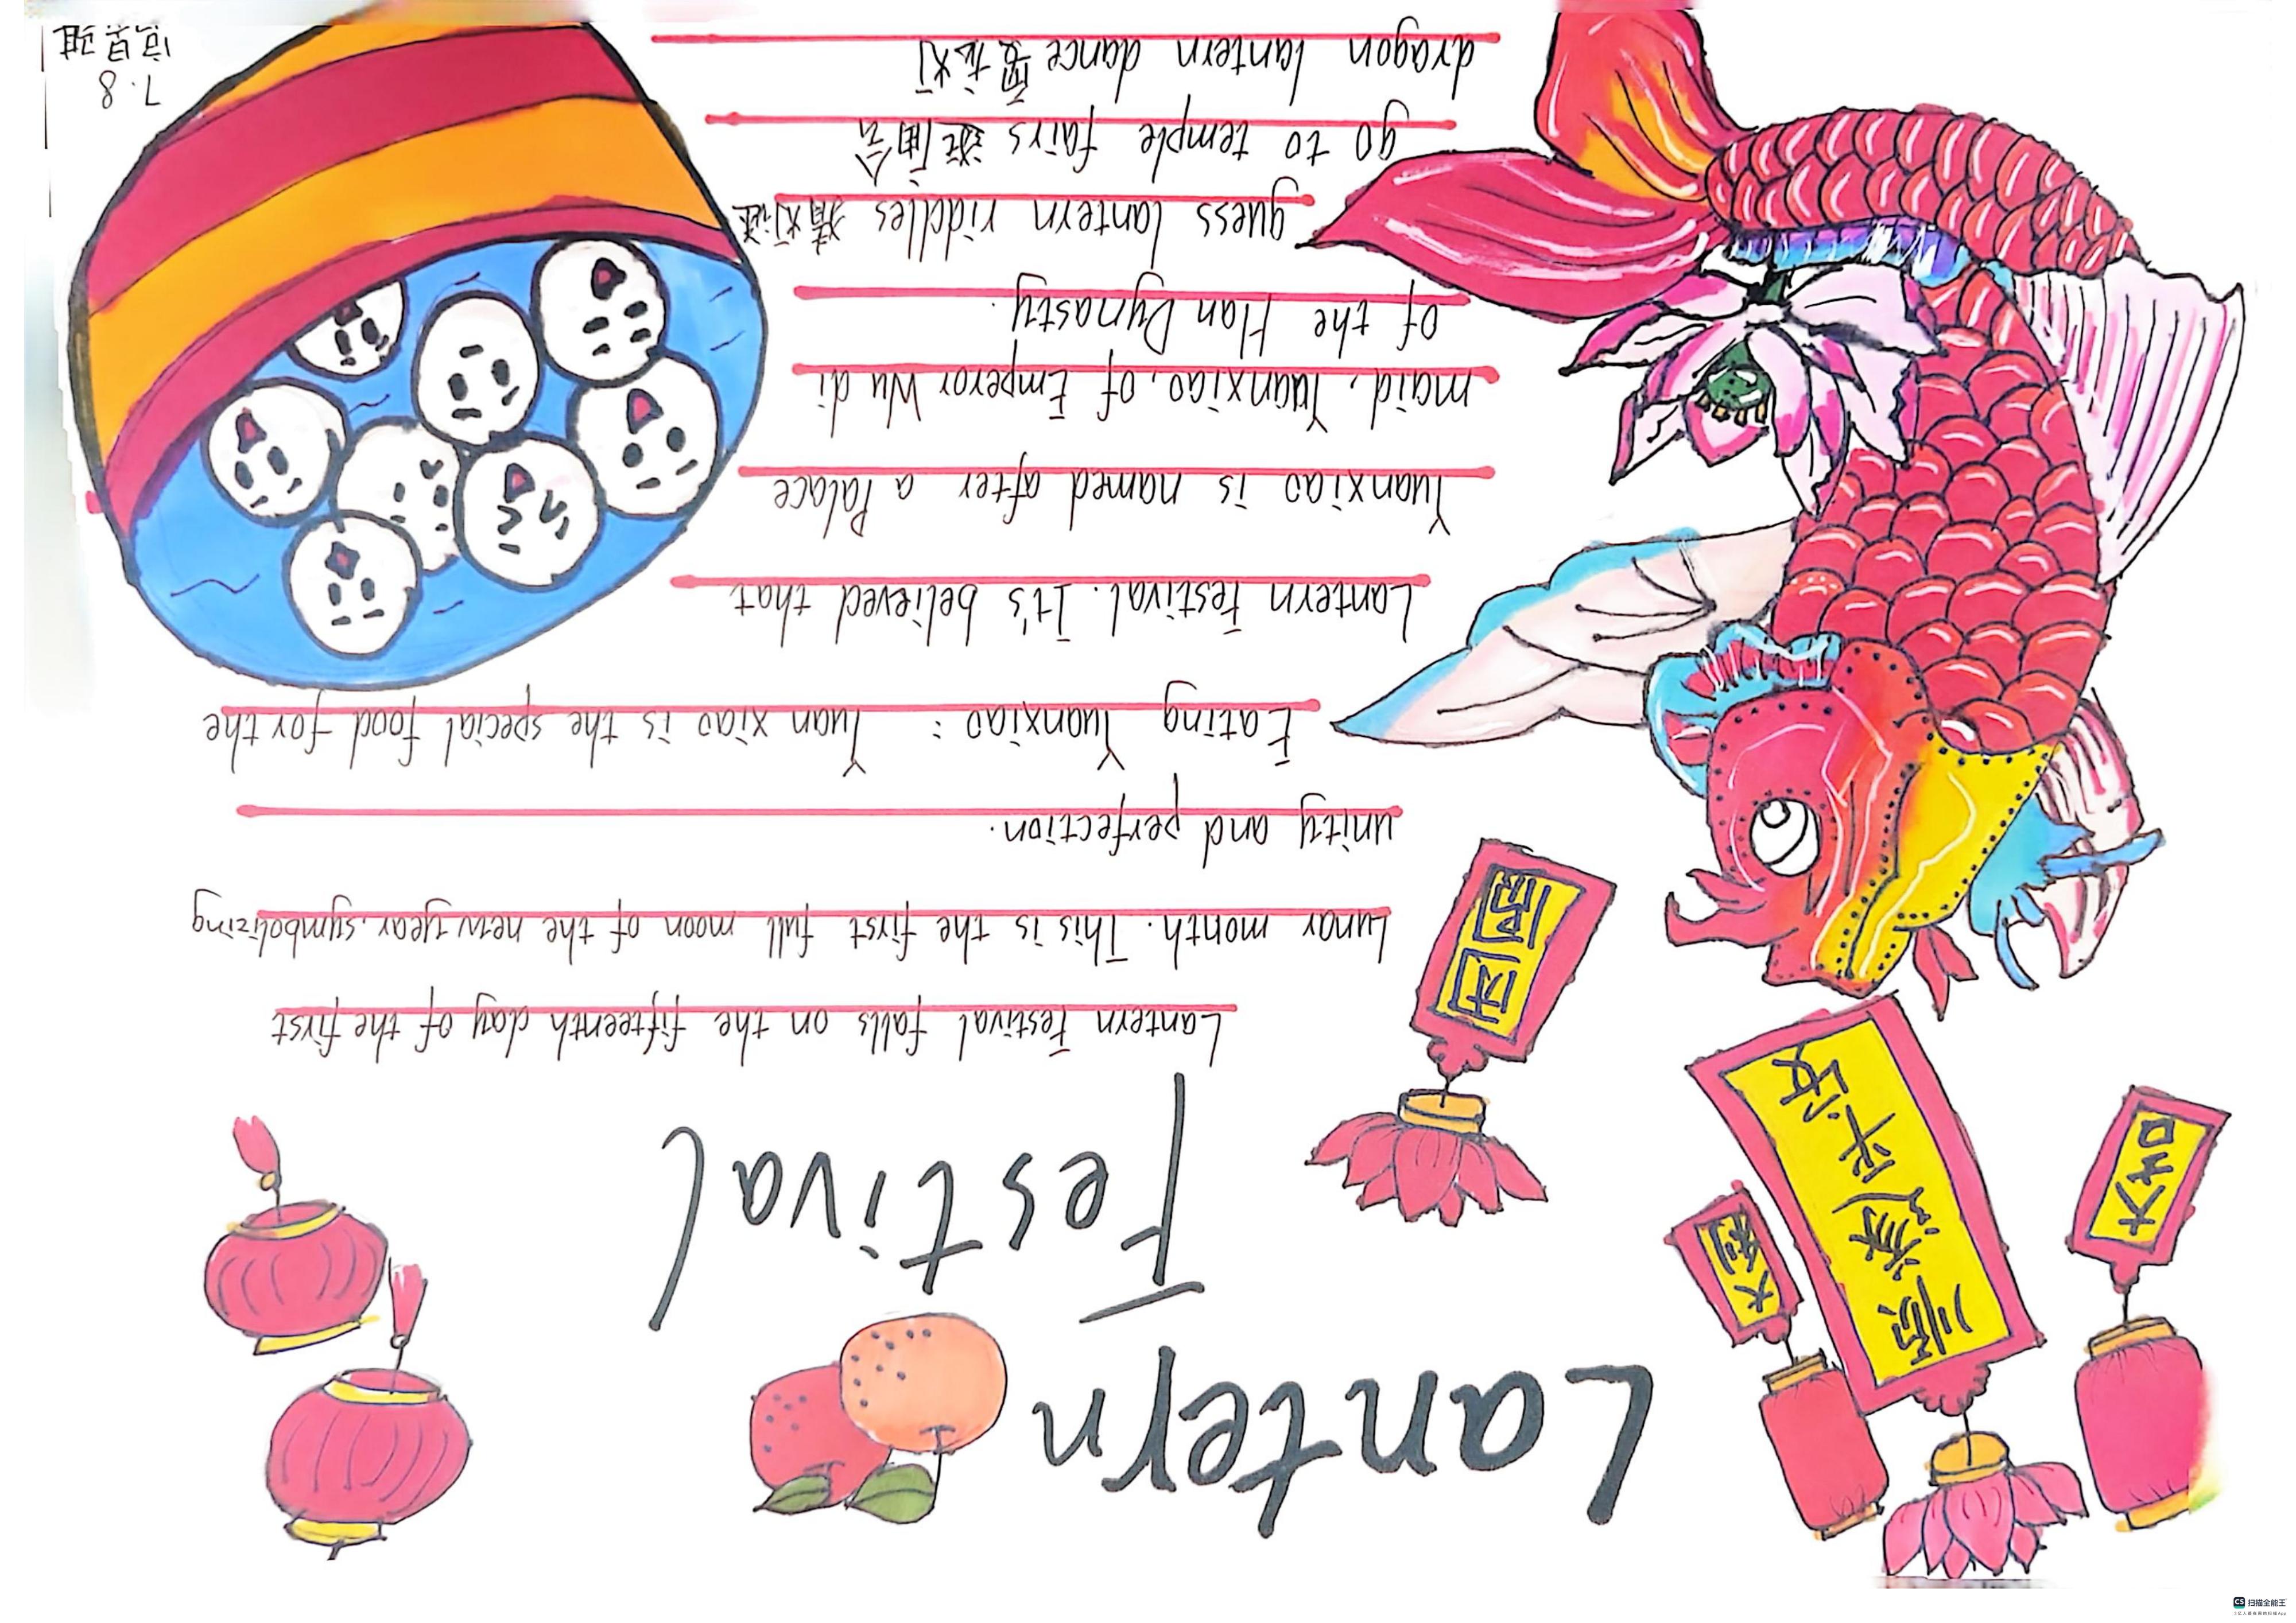 Lantern
Festival
大吉
顺遂平安
大利
团圆
Lantern Festival falls on the fifteenth day of the first
Lunar month. This is the first full moon of the new year, symbolizing
unity and perfection.
Eating Yuanxiao : Yuan xiao is the special food for the
Lantern Festival. It's believed that
Yuanxiao is named after a Palace
maid, Yuanxiao, of Emperor Wu di
of the Han Dynasty.
guess lantern riddles 猜灯谜
go to temple fairs 逛庙会
dragon lantern dance 耍龙灯
7.8
CS 扫描全能王
3亿人都在用的扫描App